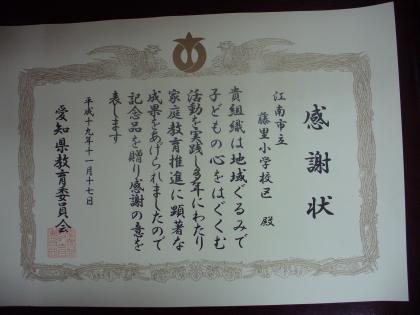 感謝状
江南市立
藤里小学校区 殿
貴組織は地域ぐるみで
子どもの心をはぐくむ
活動を実践し多年にわたり
家庭教育推進に顕著な
成果をあげられましたので
記念品を贈り感謝の意を
表します
平成十九年十一月十七日
愛知県教育委員会